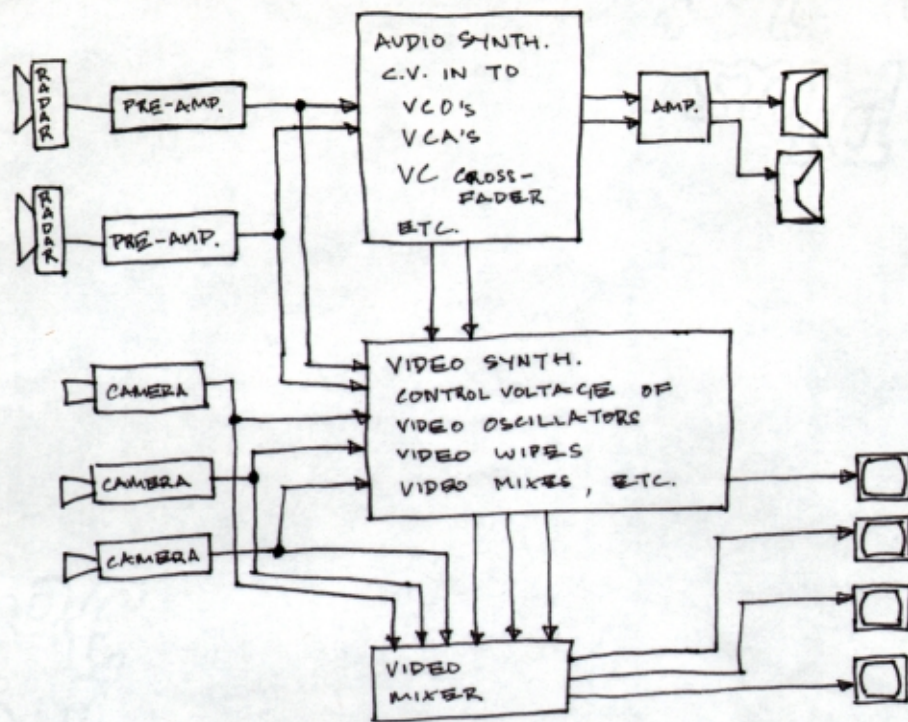 RADAR
PRE-AMP.
RADAR
PRE-AMP.
AUDIO SYNTH.
C.V. IN TO
VCO'S
VCA'S
VC CROSS-
FADER
ETC.
AMP.
CAMERA
CAMERA
CAMERA
VIDEO SYNTH.
CONTROL VOLTAGE OF
VIDEO OSCILLATORS
VIDEO WIPES
VIDEO MIXES, ETC.
VIDEO
MIXER